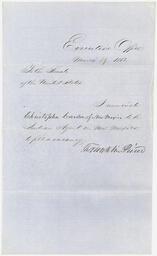 Executive Office
March
To the Senate
of the United States.
I nominate
Christopher Carson of New Mexico to be
Indian Agent in New Mexico
to fill a vacancy.
Franklin Pierce